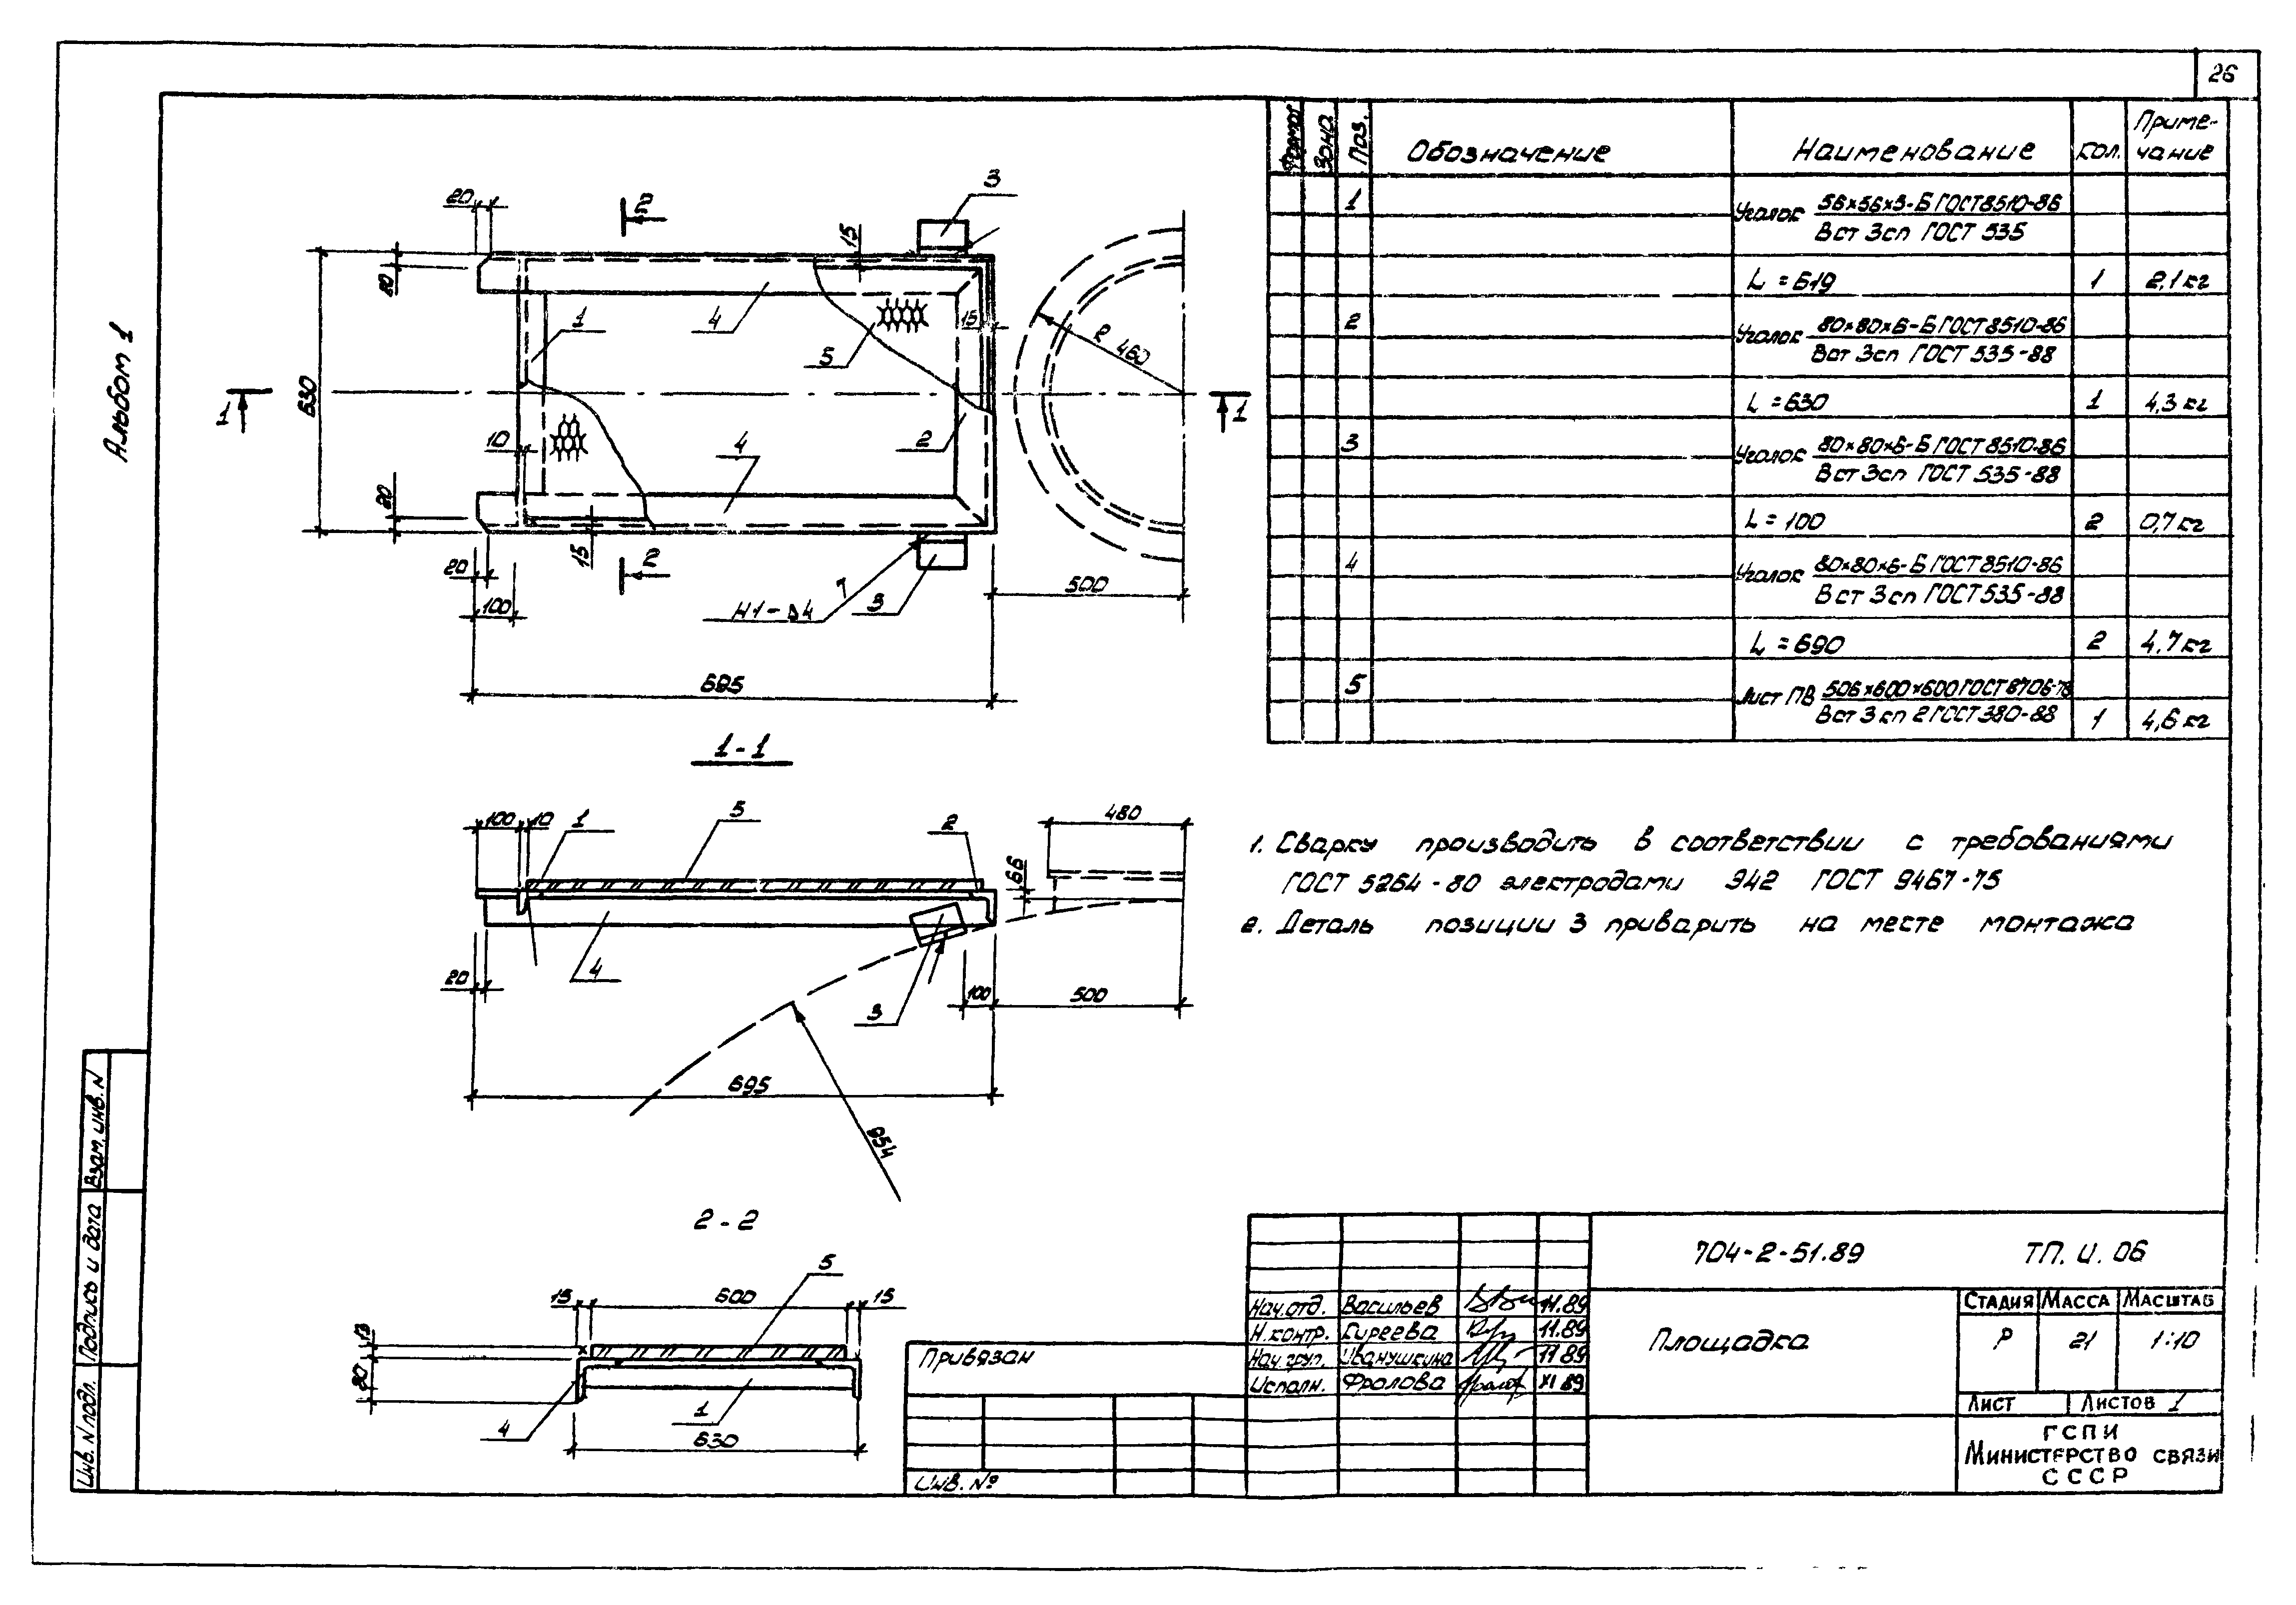 26
Альбом 1
Формат
Зона
Поз.
Обозначение
Наименование
Кол.
Приме-
чание
1
Уголок 56×56×5-Б ГОСТ 8510-86
Вст 3сп ГОСТ 535
L = 619 1 2,1 кг
2
Уголок 80×80×6-Б ГОСТ 8510-86
Вст 3сп ГОСТ 535-88
L = 630 1 4,3 кг
3
Уголок 80×80×6-Б ГОСТ 8510-86
Вст 3сп ГОСТ 535-88
L = 100 2 0,7 кг
4
Уголок 80×80×6-Б ГОСТ 8510-86
Вст 3сп ГОСТ 535-88
L = 690 2 4,7 кг
5
Лист ПВ 506×600×600 ГОСТ 8706-78
Вст 3 кп 2 ГОСТ 380-88 1 4,6 кг
20
2
3
15
20
630
1
4
5
15
R 460
1
1
10
4
2
20
15
2
20
100
Н1-Δ4
3
500
695
1-1
100
10
1
5
2
480
66
20
4
3
100
500
695
954
1. Сварку производить в соответствии с требованиями
ГОСТ 5264-80 электродами Э42 ГОСТ 9467-75
2. Деталь позиции 3 приварить на месте монтажа
2-2
15
600
5
15
13
80
4
1
630
Взам. инв. N
Подпись и дата
Инв. N подл.
Привязан
Инв. №
Нач. отд. Васильев 11.89
Н. контр. Киреева 11.89
Нач. груп. Иванушкина 11.89
Исполн. Фролова XI 89
704-2-51.89 ТП. И. 06
Площадка
Стадия Масса Масштаб
Р 21 1:10
Лист Листов 1
ГСПИ
Министерство связи
СССР